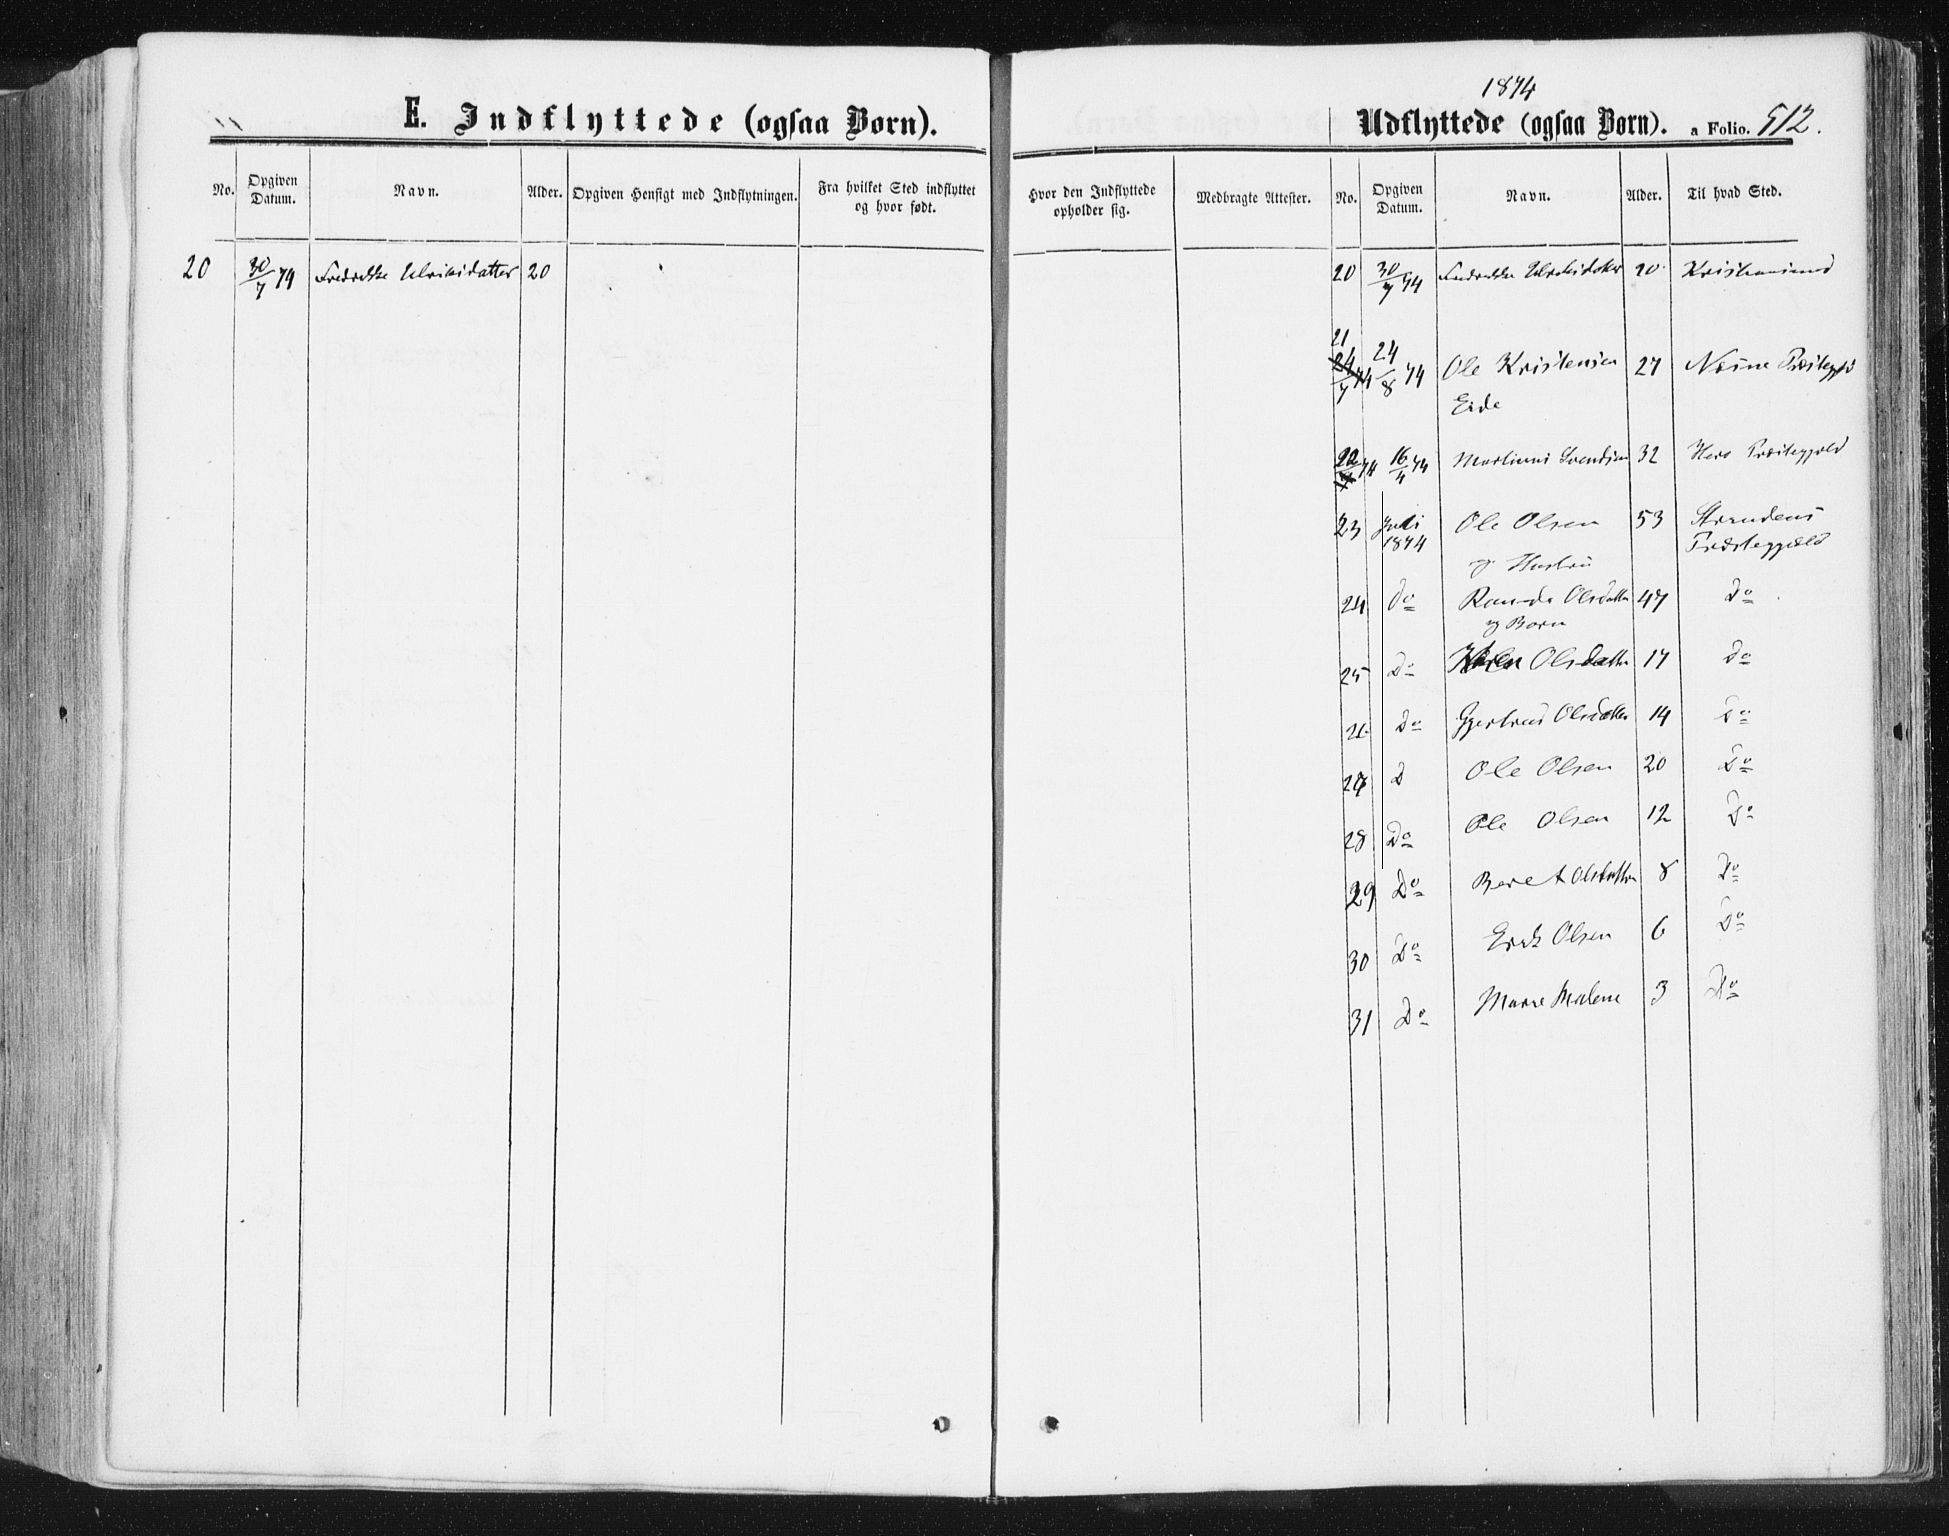 E. Indflyttede (ogsaa Børn).
No. Opgiven Datum. Navn. Alder. Opgiven Hensigt med Indflytningen. Fra hvilket Sted indflyttet og hvor født.
20 30/7 74 Fredrikke Ulriksdatter 20
1874
Udflyttede (ogsaa Børn). a Folio. 512.
Hvor den Indflyttede opholder sig. Medbragte Attester. No. Opgiven Datum. Navn. Alder. Til hvad Sted.
20 30/7 74 Fredrikke Ulriksdatter 20 Kristiansund
21 24/8 74 Ole Kristensen 27 Nesne Præstegjd
Eide
22 16/4 74 Martinus Svendsen 32 Herø Præstegjeld
23 Juli 1874 Ole Olsen 53 Strandens Præstegjæld
og Hustru
24 do Olsdatter 47 Do
og Børn
25 Do Olsdatter 17 Do
26 Do Gjertrud Olsdatter 14 Do
27 D Ole Olsen 20 Do
28 Do Ole Olsen 12 Do
29 Do Beret Olsdatter 8 Do
30 Do Erik Olsen 6 Do
31 Do Malene 3 Do